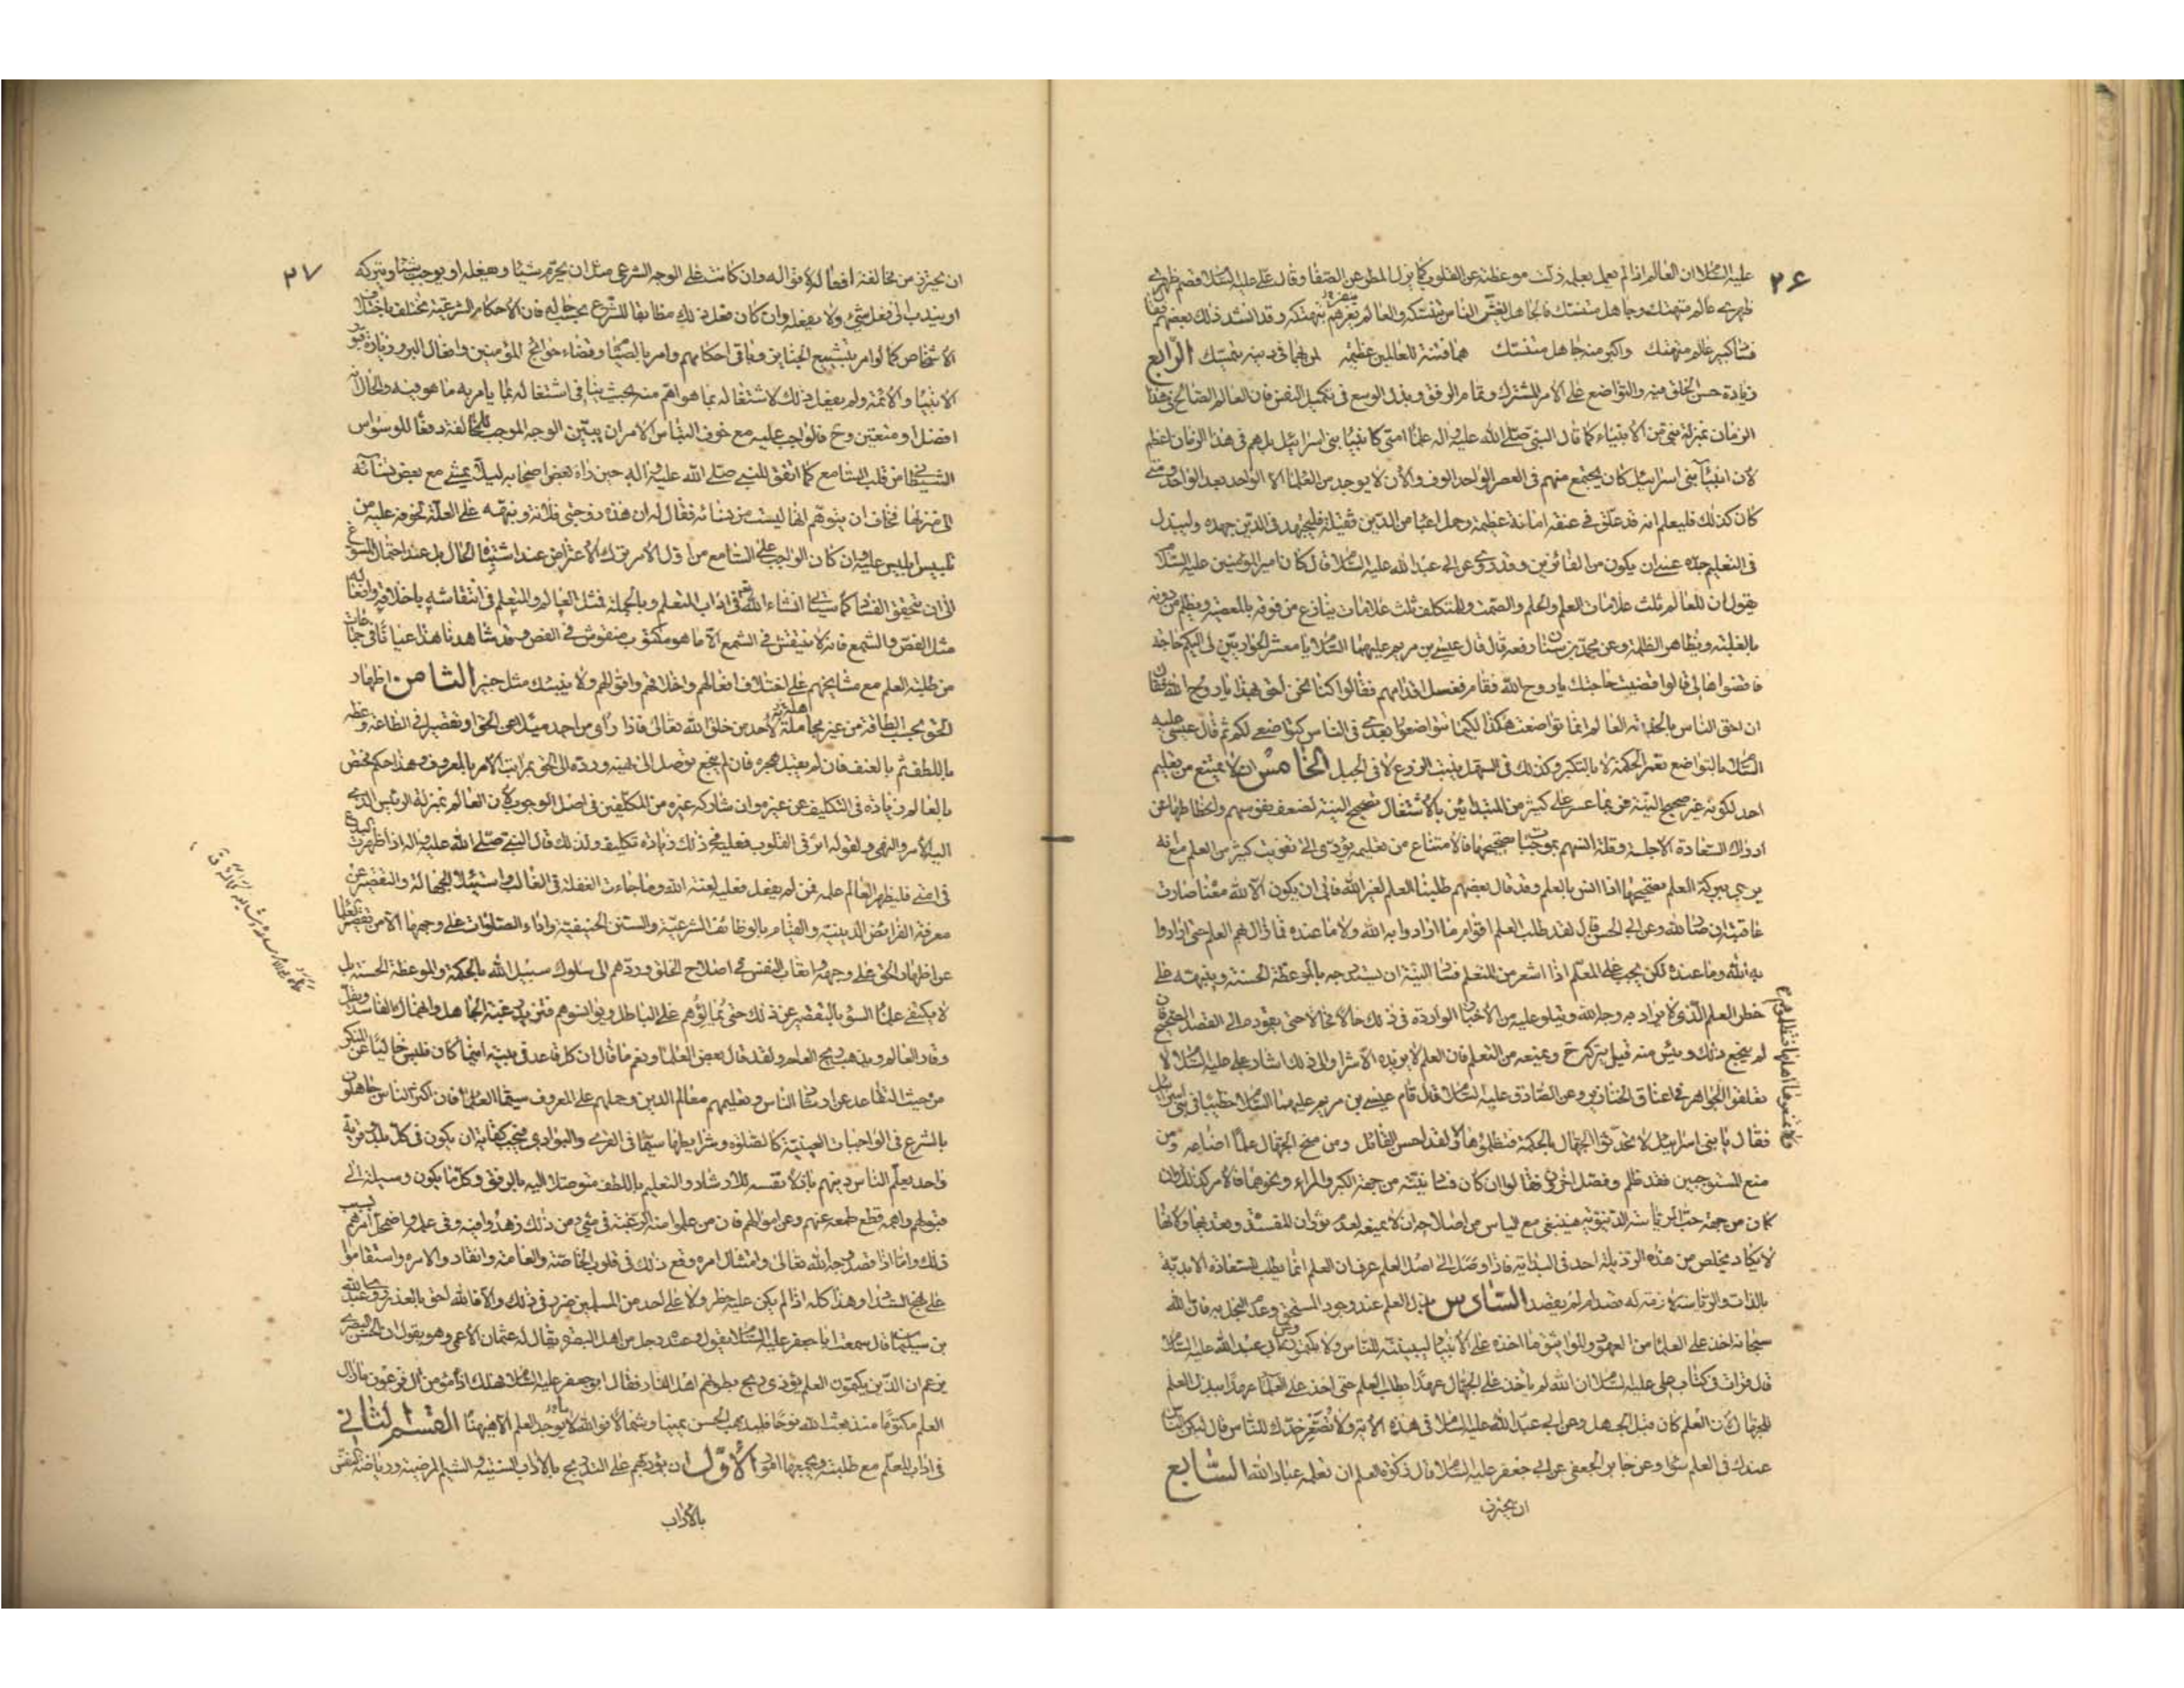 ٢۶
عليه السلام ان العالم اذا لم يعمل بعلمه زلت موعظته عن القلوب كما يزل المطر عن الصفا وقال علي عليه السلام قصم ظهري
ظهري عالم متهتك وجاهل متنسك فالجاهل يغش الناس بتنسكه والعالم يغرهم بتهتكه وقد انشد ذلك بعضهم فقال
فساد كبير عالم متهتك واكبر منه جاهل متنسك هما فتنة للعالمين عظيمة لمن بهما في دينه يتمسك الرابع
زيادة حسن الخلق فيه والتواضع على الامر المشترك وتمام الرفق وبذل الوسع في تكميل النفس فان العالم الصالح في هذا
الزمان بمنزلة نبي من الانبياء كما قال النبي صلى الله عليه واله علماء امتي كانبياء بني اسرائيل بل هم في هذا الزمان اعظم
لان انبياء بني اسرائيل كان يجتمع منهم في العصر الواحد الوف والان لا يوجد من العلماء الا الواحد بعد الواحد ومتى
كان كذلك فليعلم انه قد علق في عنقه امانة عظيمة وحمل اعباء من الدين ثقيلة فليجتهد في الدين جهده وليبذل
في التعليم جده عسى ان يكون من الفائزين وقد روى عن ابي عبد الله عليه السلام قال كان امير المؤمنين عليه السلام
يقول ان للعالم ثلث علامات العلم والحلم والصمت وللمتكلف ثلث علامات ينازع من فوقه بالمعصية ويظلم من دونه
بالغلبة ويظاهر الظلمة وعن محمد بن سنان رفعه قال قال عيسى بن مريم عليهما السلام يا معشر الحواريين لي اليكم حاجة
فاقضوها لي قالوا قضيت حاجتك يا روح الله فقام فغسل اقدامهم فقالوا كنا نحن احق بهذا يا روح الله فقال
ان احق الناس بالخدمة العالم انما تواضعت هكذا لكيما تتواضعوا بعدي في الناس كتواضعي لكم ثم قال عيسى عليه
السلام بالتواضع تعمر الحكمة لا بالتكبر وكذلك في السهل ينبت الزرع لا في الجبل الخامس ان لا يمتنع من تعليم
احد لكونه غير صحيح النية فربما عسر على كثير من المبتدئين بالاشتغال تصحيح النية لضعف نفوسهم وانحطاطها عن
ادراك السعادة الاجلة وقلة انسهم بموجبات تصحيحها فالامتناع من تعليمهم يؤدي الى تفويت كثير من العلم مع انه
يرجى ببركة العلم تصحيحها اذا انس بالعلم وقد قال بعضهم طلبنا العلم لغير الله فابى ان يكون الا لله معناه صارت
عاقبته ان صار لله وعن ابي الحسن قال لقد طلب العلم اقوام ما ارادوا به الله ولا ما عنده فما زال بهم العلم حتى ارادوا
به الله وما عنده لكن يجب على المعلم اذا اشعر من المتعلم فساد النية ان يستدرجه بالموعظة الحسنة وينبهه على
خطر العلم الذي لا يراد به وجه الله ويتلو عليه من الاخبار الواردة في ذلك حالا فحالا حتى يقوده الى القصد الصحيح فان
لم ينجع ذلك ويئس منه قيل يتركه ح ويمنعه من التعلم فان العلم لا يزيده الا شرا والى ذلك اشار علي عليه السلام لا
تعلقوا الجواهر في اعناق الخنازير وعن الصادق عليه السلام قال قام عيسى بن مريم عليهما السلام خطيبا في بني اسرائيل
فقال يا بني اسرائيل لا تحدثوا الجهال بالحكمة فتظلموها ولقد احسن القائل ومن منح الجهال علما اضاعه ومن
منع المستوجبين فقد ظلم وفصل اخرون فقالوا ان كان فساد نيته من جهة الكبر والمراء ونحوهما فالامر كذلك وان
كان من جهة حب الرياسة الدنيوية فينبغي مع الياس من اصلاحه ان لا يمنعه لعدم ثوران المفسدة وتعديها ولانها
لا يكاد يخلص من هذه الرذيلة احد في البداية فاذا وصل الى اصل العلم عرف ان العلم انما يطلب للسعادة الابدية
بالذات والرياسة لازمة له قصد ام لم يقصد السادس بذل العلم عند وجود المستحق وعدم البخل به فان الله
سبحانه اخذ على العلماء من العهود والمواثيق ما اخذه على الانبياء ليبيننه للناس ولا يكتمونه وعن ابي عبد الله عليه السلام
قال قرات في كتاب علي عليه السلام ان الله لم ياخذ على الجهال عهدا بطلب العلم حتى اخذ على العلماء عهدا ببذل العلم
للجهال لان العلم كان قبل الجهل وعن ابي عبد الله عليه السلام في هذه الاية ولا تصعر خدك للناس قال ليكن الناس
عندك في العلم سواء وعن جابر الجعفي عن ابي جعفر عليه السلام قال زكوة العلم ان تعلمه عباد الله السابع
ان يحترز
ولا تمنعوها اهلها فتظلموهم
٢٧
ان يحترز من مخالفة افعاله لاقواله وان كانت على الوجه الشرعي مثل ان يحرم شيئا ويفعله او يوجب شيئا ويتركه
او يندب الى فعل شيء ولا يفعله وان كان فعل ذلك مطابقا للشرع بحسب حاله فان الاحكام الشرعية تختلف باختلاف
الاشخاص كما لو امر بتشييع الجنايز وباقي احكامهم وامر بالصيام وقضاء حوائج المؤمنين وافعال البر وزيارة قبور
الانبياء والائمة ولم يفعل ذلك لاشتغاله بما هو اهم منه بحيث ينافي اشتغاله بما يامر به ما هو فيه والحال انه
افضل او متعين وح فالواجب عليه مع خوف التباس الامر ان يبين الوجه الموجب للمخالفة دفعا للوسواس
الشيطاني من قلب السامع كما اتفق للنبي صلى الله عليه واله حين راه بعض اصحابه ليلا يمشي مع بعض نسائه
الى منزلها فخاف ان يتوهم انها ليست من نسائه فقال له ان هذه زوجتي فلانة ونبهه على العلة لخوفه عليه من
تلبيس ابليس عليه وان كان الواجب على السامع من اول الامر ترك الاعتراض عند اشتباه الحال بل عند احتمال المسوغ
الى ان يتحقق الفساد كما سياتي انشاء الله تعالى في اداب المتعلم وبالجملة فمثل العالم والمتعلم في انتقاشه باخلاقه وافعاله
مثل الفص والشمع فانه لا ينتقش في الشمع الا ما هو مكتوب منقوش في الفص وقد شاهدنا هذا عيانا في جماعات
من طلبة العلم مع مشايخهم على اختلاف افعالهم واخلاقهم واقوالهم ولا ينبئك مثل خبير الثامن اظهار
الحق بحسب الطاقة من غير مجاملة لاحد من خلق الله تعالى فاذا راى من احد ميلا عن الحق او تقصيرا في الطاعة وعظه
باللطف ثم بالعنف فان لم يقبل هجره فان لم ينجع توصل الى نهيه ورده الى الحق بمراتب الامر بالمعروف وهذا حكم يختص
بالعالم زيادة في التكليف عن غيره وان شاركه غيره من المكلفين في اصل الوجوب لان العالم بمنزلة الرئيس الذي
اليه الامر والنهي ولقوله اثر في القلوب فعليه في ذلك زيادة تكليف ولذلك قال النبي صلى الله عليه واله اذا ظهرت البدع
في امتي فليظهر العالم علمه فمن لم يفعل فعليه لعنة الله وما جاءت الغفلة في الغالب واستيلاء الجهالة والتقصير عن
معرفة الفرائض الدينية والقيام بالوظائف الشرعية والسنن الحنيفية واداء الصلوات على وجهها الا من تقصير العلماء
عن اظهار الحق على وجهه واتعاب النفس في اصلاح الخلق وردهم الى سلوك سبيل الله بالحكمة والموعظة الحسنة بل
لا يكتفي علماء السوء بالتقصير عن ذلك حتى يمالؤهم على الباطل ويؤانسوهم فتزيد رغبة الجاهل وانهماك الفاسد ويقل
وقار العالم ويذهب ريح العلم ولقد قال بعض العلماء ونعم ما قال ان كل قاعد في بيته اينما كان فليس خاليا عن المنكر
من حيث التقاعد عن ارشاد الناس وتعليمهم معالم الدين وحملهم على المعروف سيما العلماء فان اكثر الناس جاهلون
بالشرع في الواجبات العينية كالصلوة وشرايطها سيما في القرى والبوادي فيجب كفاية ان يكون في كل بلد وقرية
واحد يعلم الناس دينهم باذلا نفسه للارشاد والتعليم باللطف متوصلا اليه بالرفق وكل ما يكون وسيلة الى
قبولهم واهمه قطع طمعه عنهم وعن اموالهم فان من علموا منه الرغبة في شيء من ذلك زهدوا فيه وفي علمه واضمحل امرهم بسبب
ذلك واما اذا قصد وجه الله تعالى وامتثال امره وقع ذلك في قلوب الخاصة والعامة وانقادوا لامره واستقاموا
على نهج السداد وهذا كله اذا لم يكن عليه خطر ولا على احد من المسلمين ضرر في ذلك والا فالله احق بالعذر روى عبد الله
بن سليمان قال سمعت ابا جعفر عليه السلام يقول وعنده رجل من اهل البصرة يقال له عثمان الاعمى وهو يقول ان الحسن البصري
يزعم ان الذين يكتمون العلم يؤذي ريح بطونهم اهل النار فقال ابو جعفر عليه السلام فهلك اذا مؤمن ال فرعون ما زال
العلم مكتوما منذ بعث الله نوحا فليذهب الحسن يمينا وشمالا فوالله لا يوجد العلم الا فيهنا القسم الثاني
في اداب المعلم مع طلبته ويجمعها امور الاول ان يؤدبهم على التدريج بالاداب السنية والشيم المرضية ورياضة النفس
بالاداب